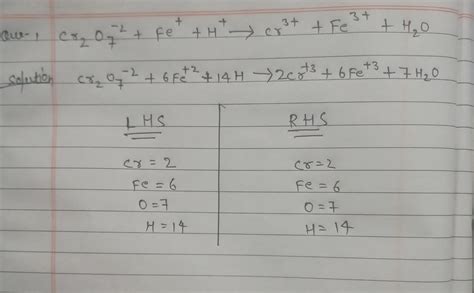 Que, Cr₂O₇⁻² + Fe⁺ + H⁺ → Cr³⁺ + Fe³⁺ + H₂O
Solution Cr₂O₇⁻² + 6Fe⁺² + 14H → 2Cr⁺³ + 6Fe⁺³ + 7H₂O
LHS RHS
Cr = 2 Cr = 2
Fe = 6 Fe = 6
O = 7 O = 7
H = 14 H = 14